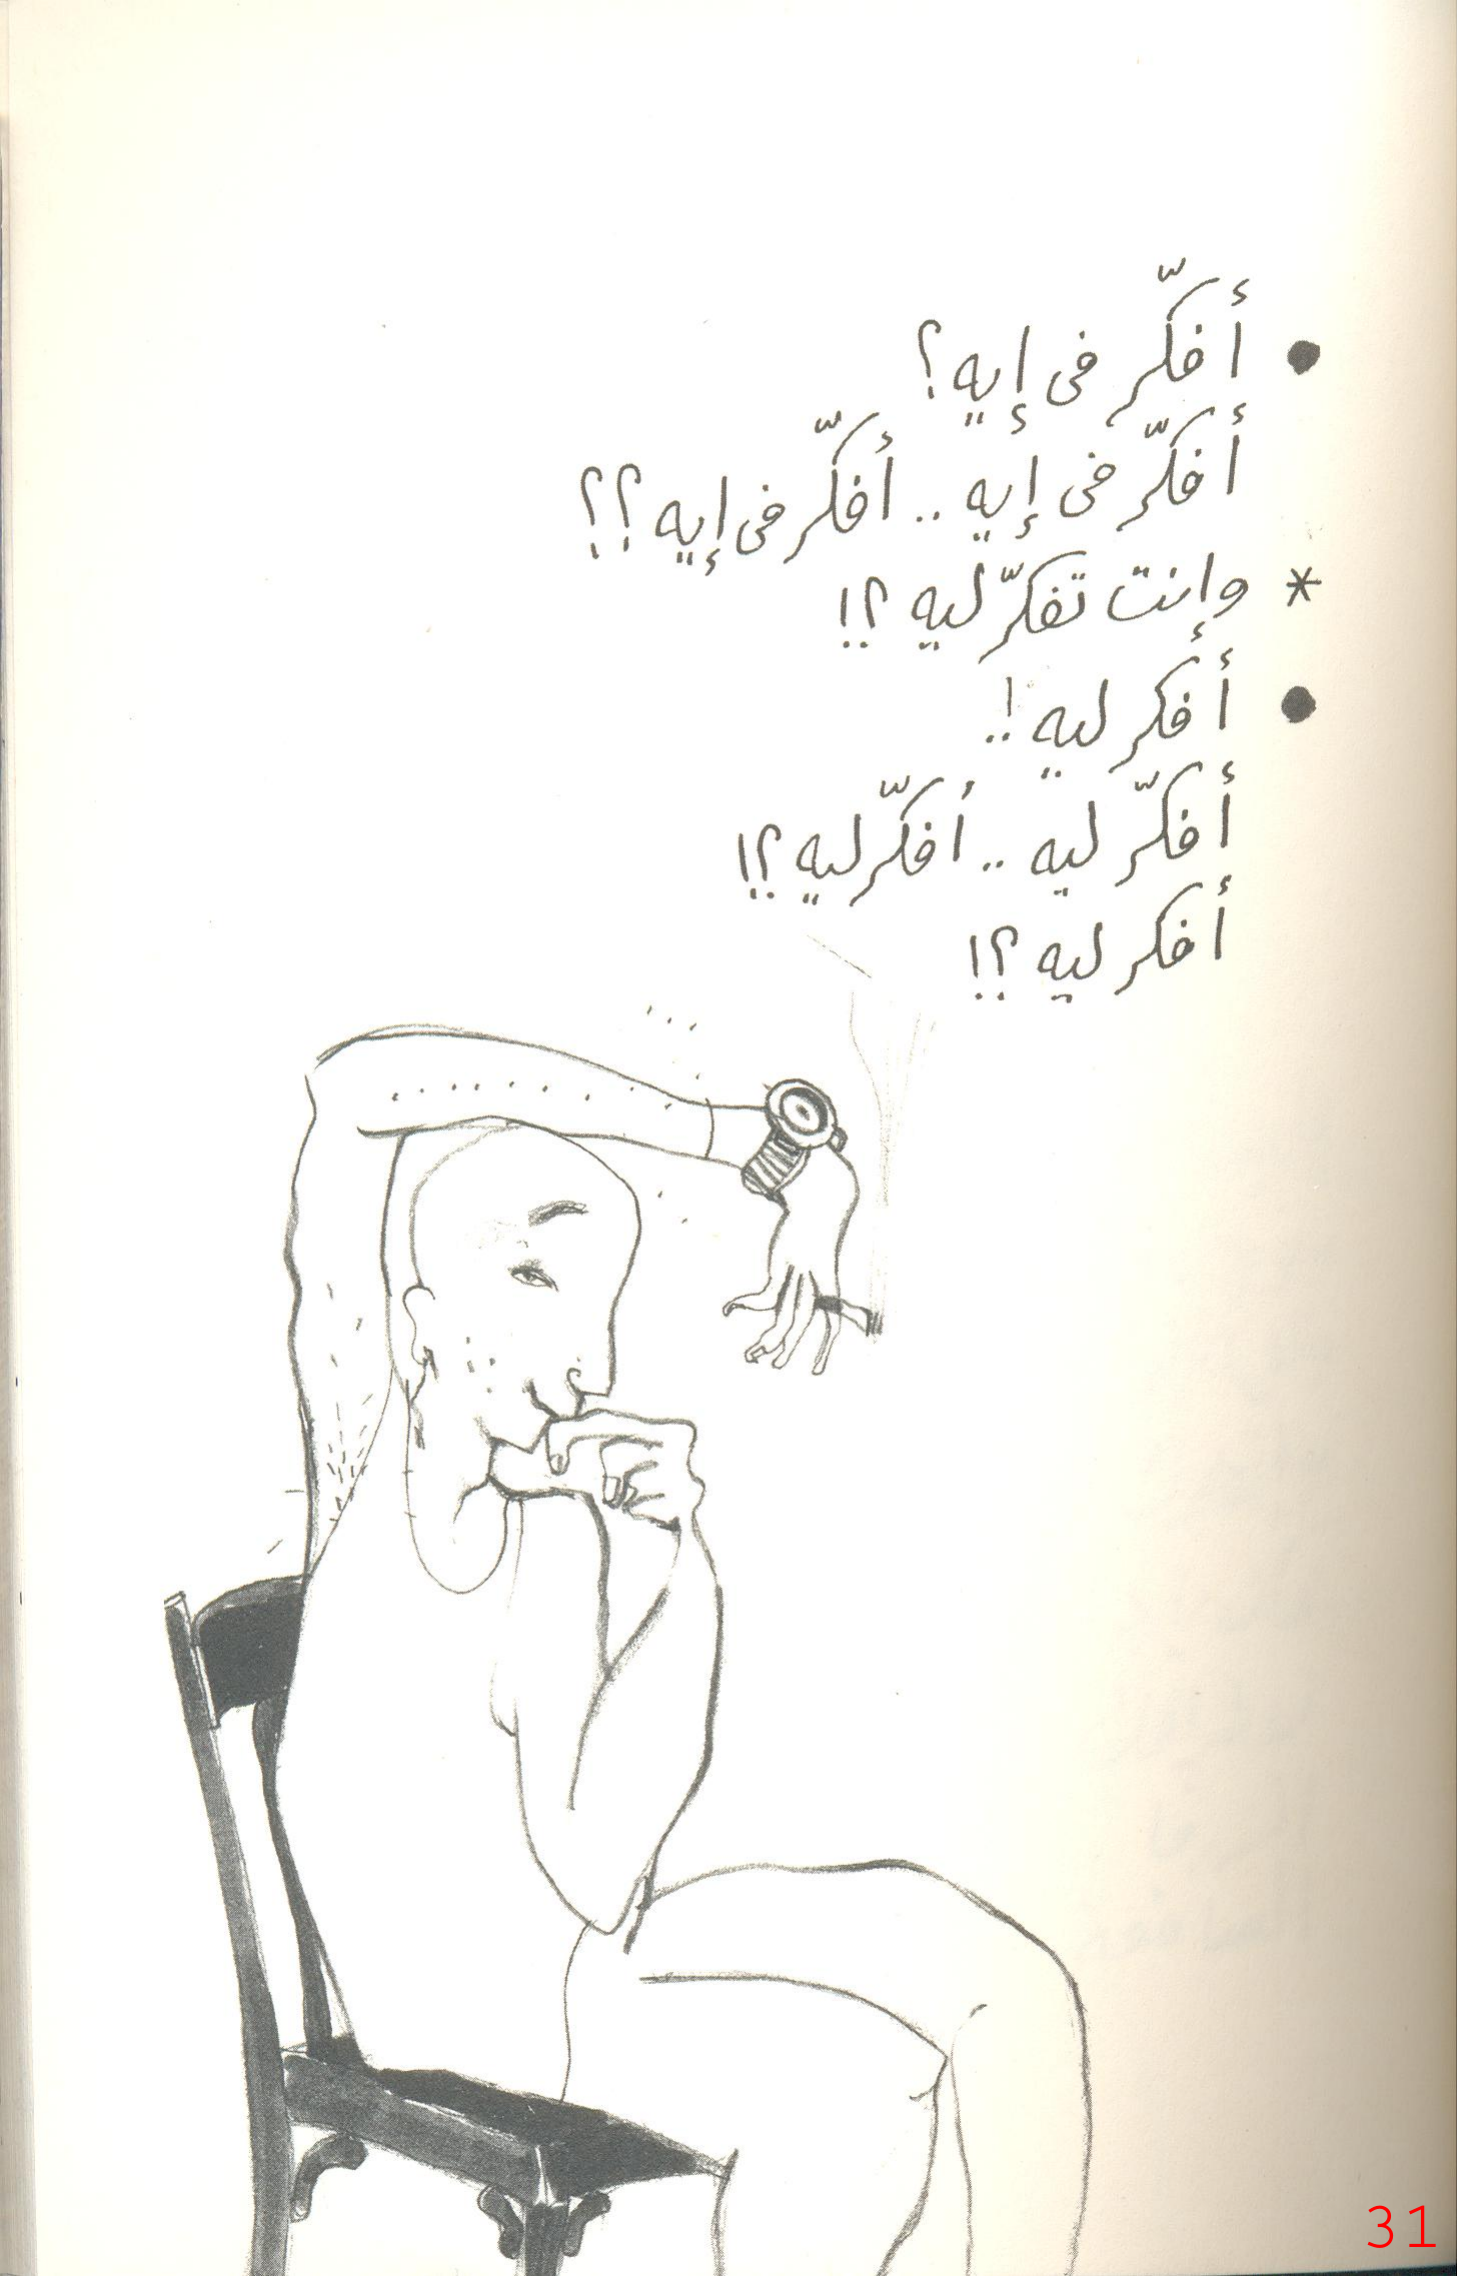 • أفكّر فى إيه؟
أفكّر فى إيه .. أفكّر فى إيه؟؟
* وإنت تفكرّ ليه؟!
• أفكر ليه!..
أفكّر ليه .. أفكّر ليه؟!
أفكر ليه؟!
31